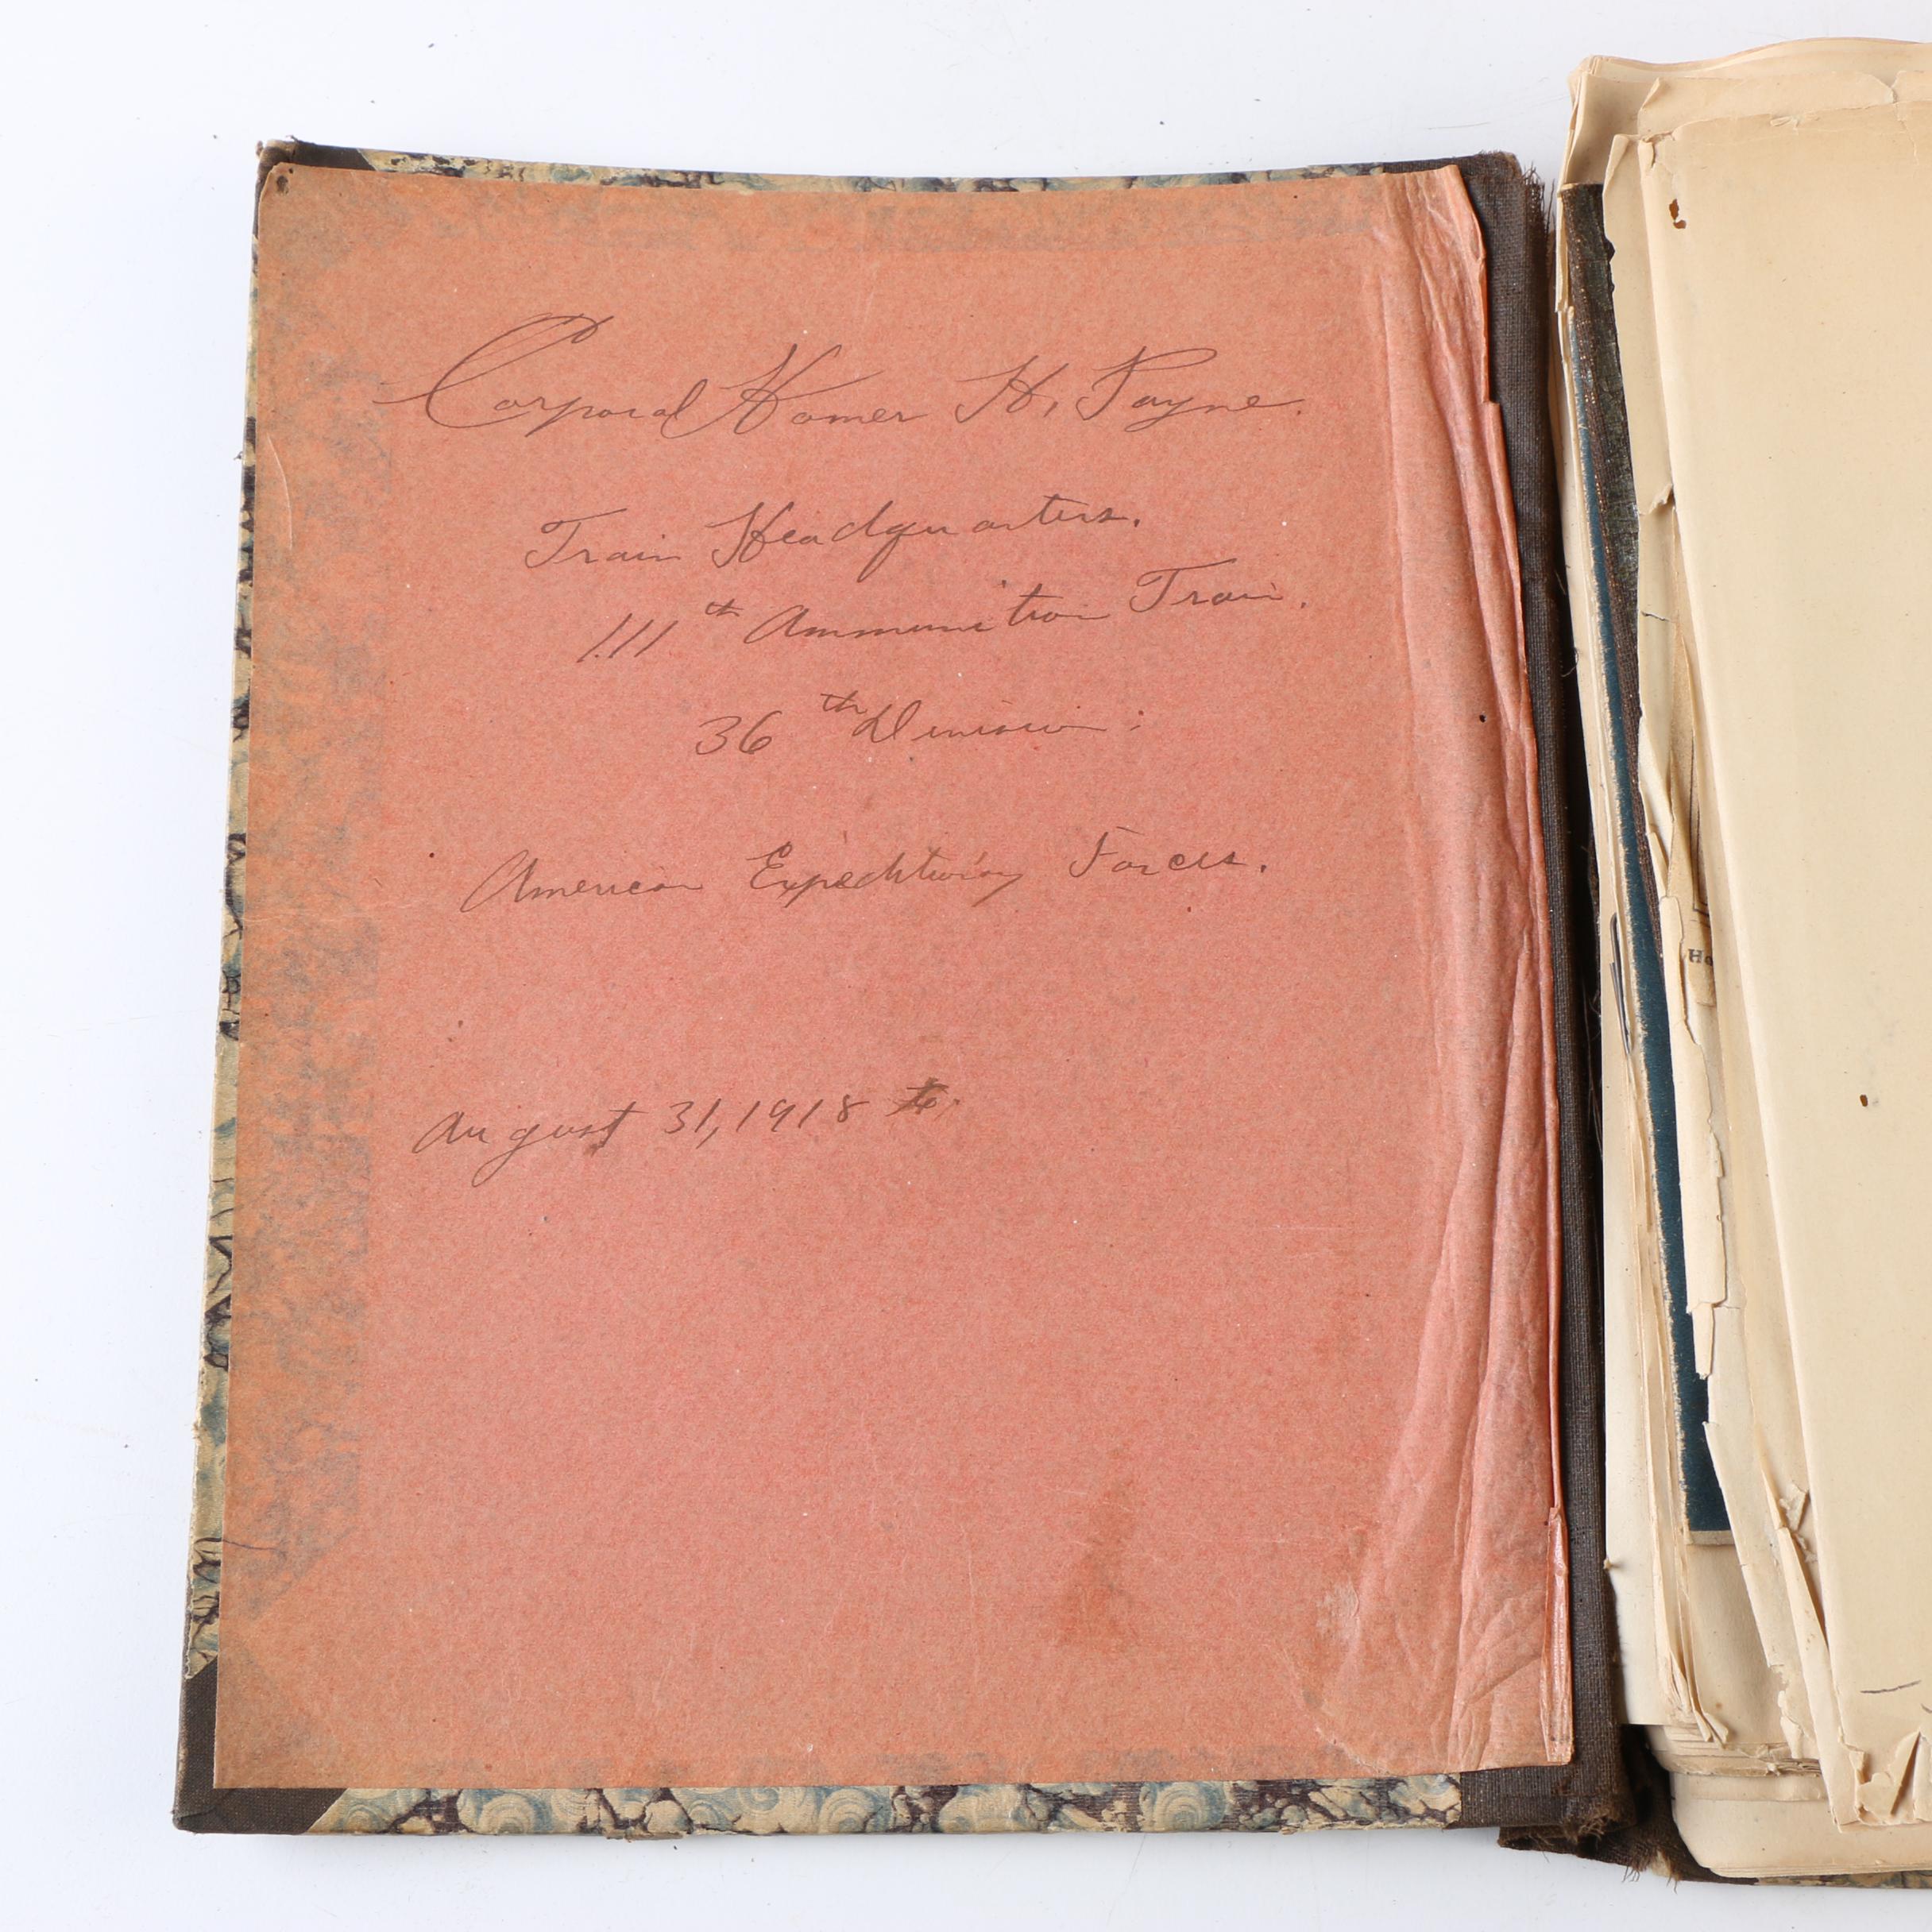 Corporal Homer H. Payne.
Train Headquarters.
111th Ammunition Train.
36th Division.
American Expeditionary Forces.
August 31, 1918 to